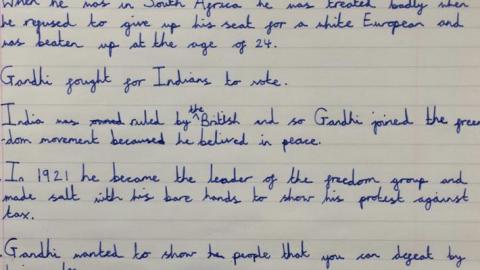 When he was in South Africa he was treated badly when
he refused to give up his seat for a white European and
was beaten up at the age of 24.
Gandhi fought for Indians to vote.
India was ruled by the British and so Gandhi joined the free
-dom movement becaused he belived in peace.
In 1921 he became the leader of the freedom group and
made salt with his bare hands to show his protest against
tax.
Gandhi wanted to show her people that you can defeat by